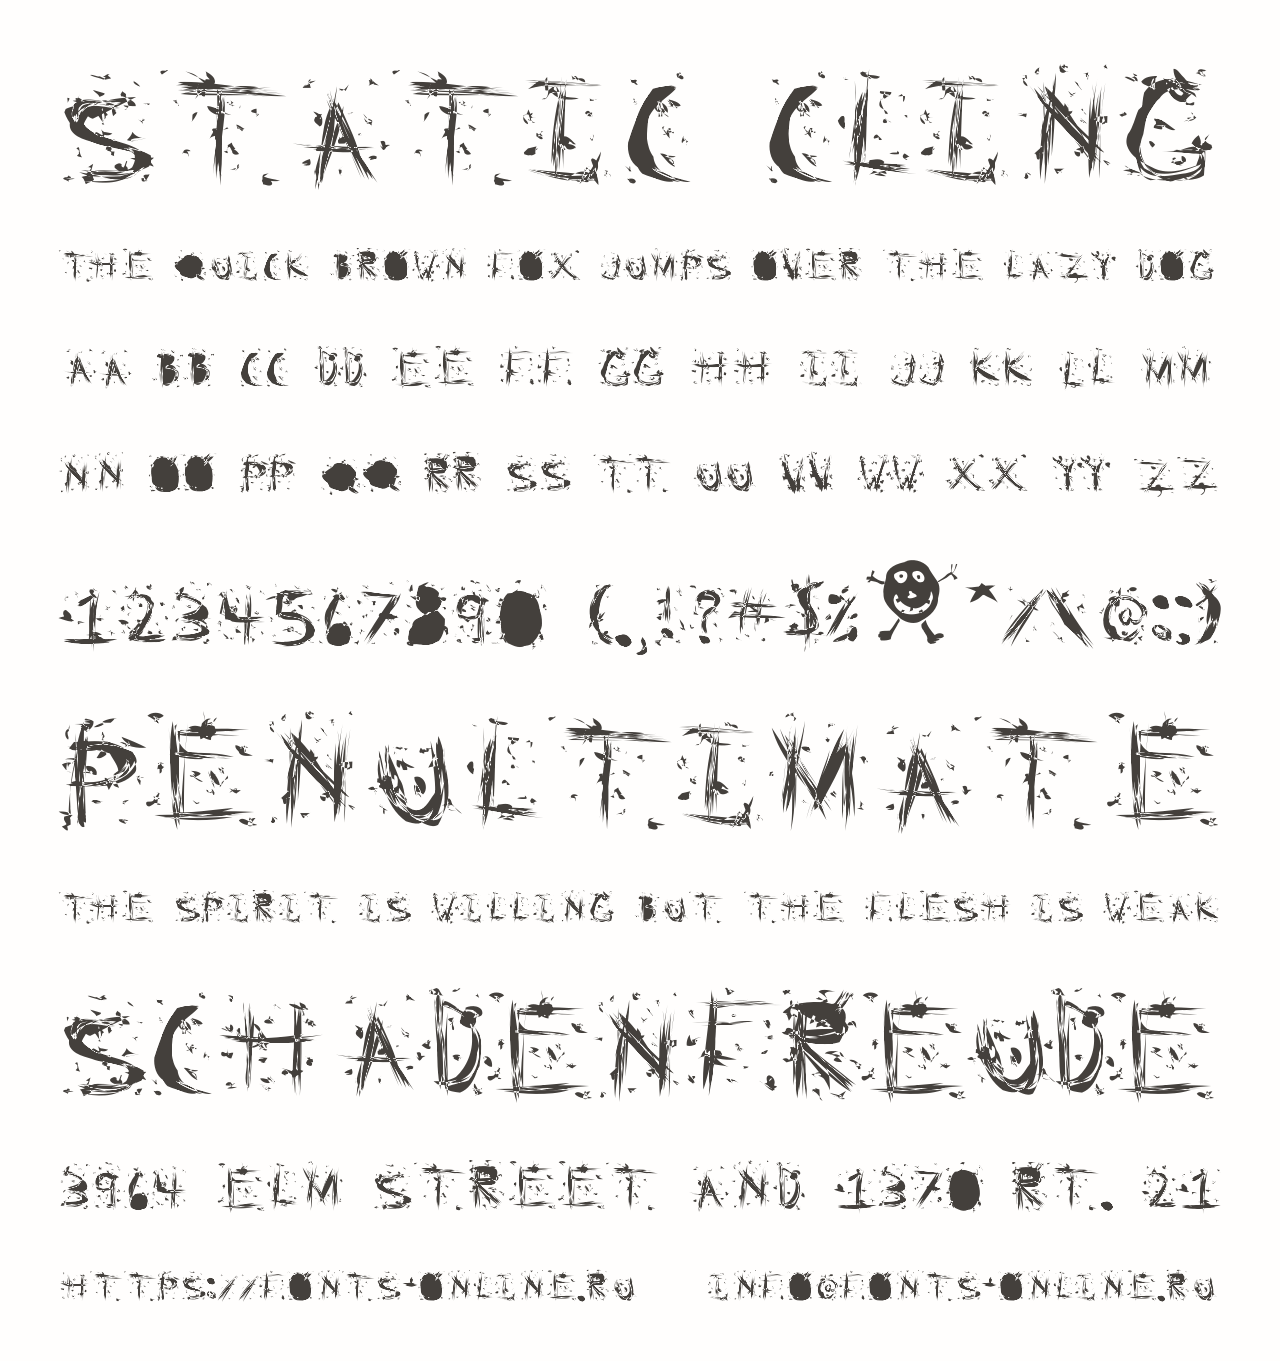 STATIC CLING
THE QUICK BROWN FOX JUMPS OVER THE LAZY DOG
AA BB CC DD EE FF GG HH II JJ KK LL MM
NN OO PP QQ RR SS TT UU VV WW XX YY ZZ
1234567890 (,!?#$%&*^@:;)
PENULTIMATE
THE SPIRIT IS WILLING BUT THE FLESH IS WEAK
SCHADENFREUDE
3964 ELM STREET AND 1370 RT. 21
HTTPS://FONTS-ONLINE.RU INFO@FONTS-ONLINE.RU